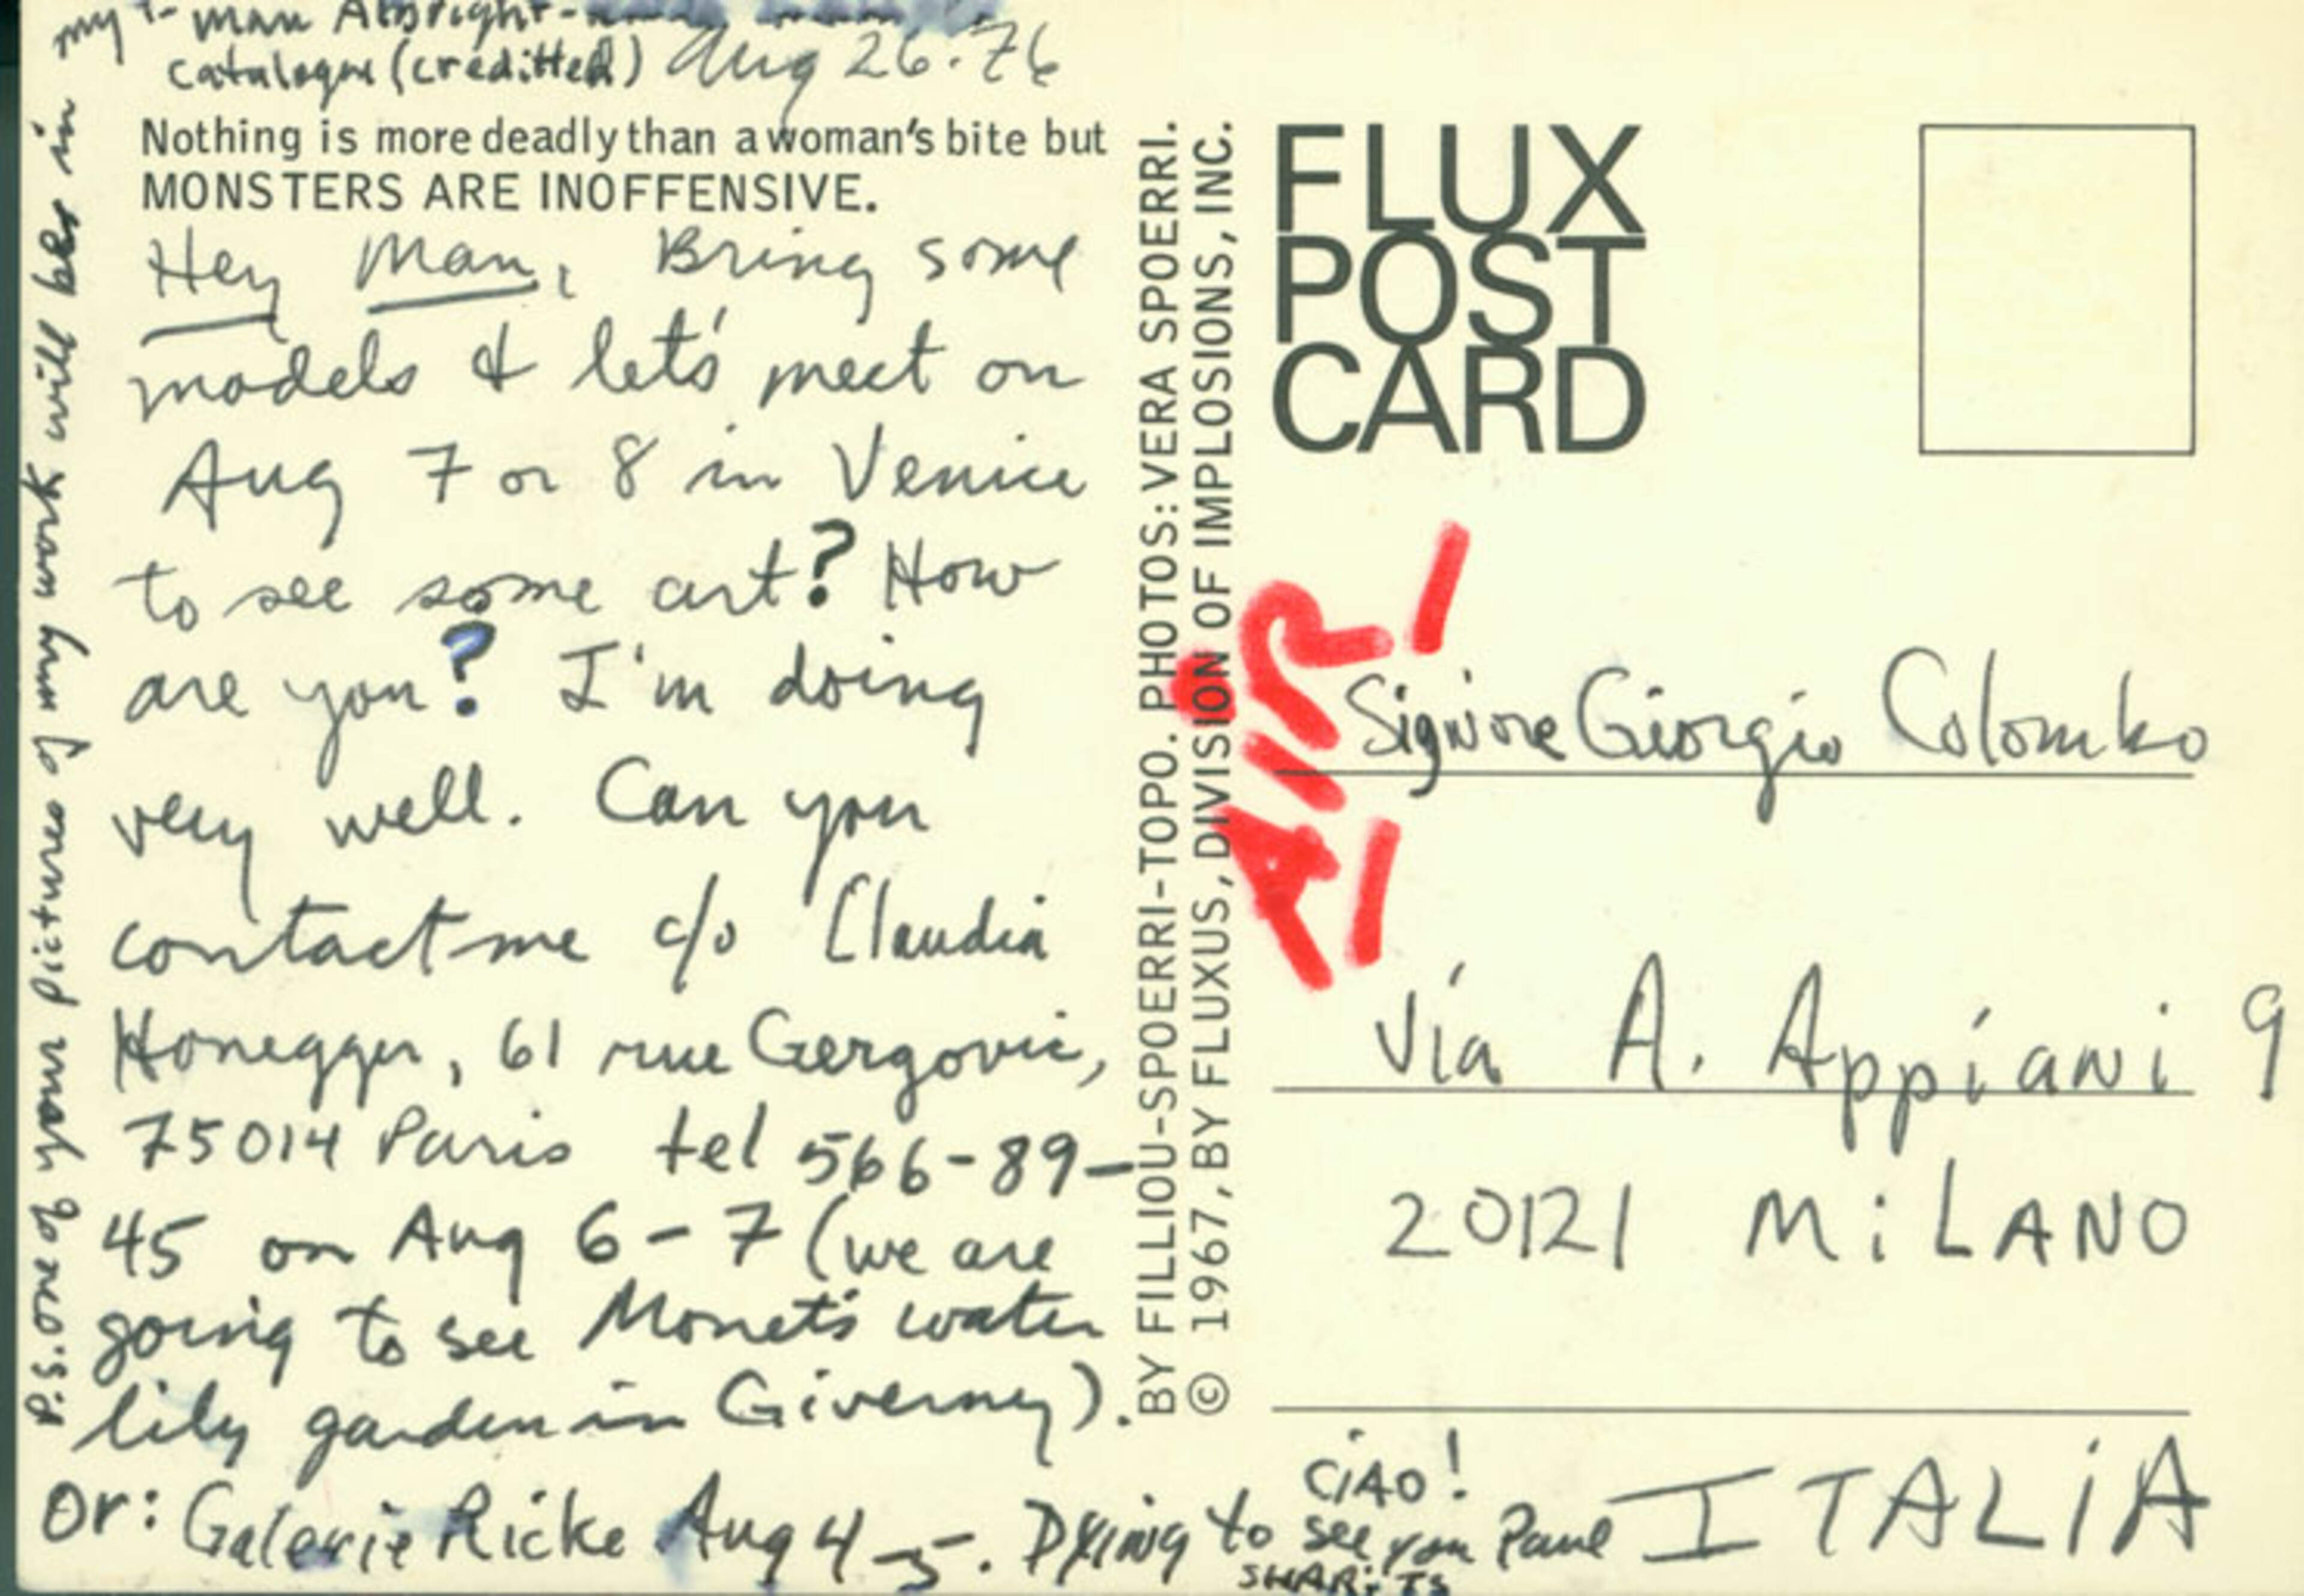 my 1-man Albright-
catalogue (creditted) Aug 26.76
Nothing is more deadly than a woman's bite but
MONSTERS ARE INOFFENSIVE.
Hey Man, Bring some
models & let's meet on
Aug 7 or 8 in Venice
to see some art? How
are you? I'm doing
very well. Can you
contact me c/o Claudia
Honegger, 61 rue Gergovie,
75014 Paris tel 566-89-
45 on Aug 6-7 (we are
going to see Monet's water
lily garden in Giverny).
or: Galerie Ricke Aug 4-5. Dying to see you Paul
SHARITS
P.S. one of your pictures of my work will be in
BY FILLIOU-SPOERRI-TOPO. PHOTOS: VERA SPOERRI.
© 1967, BY FLUXUS, DIVISION OF IMPLOSIONS, INC.
FLUX
POST
CARD
AIR
Signore Giorgio Colombo
Via A. Appiani 9
20121 MiLANO
CiAO!
ITALiA